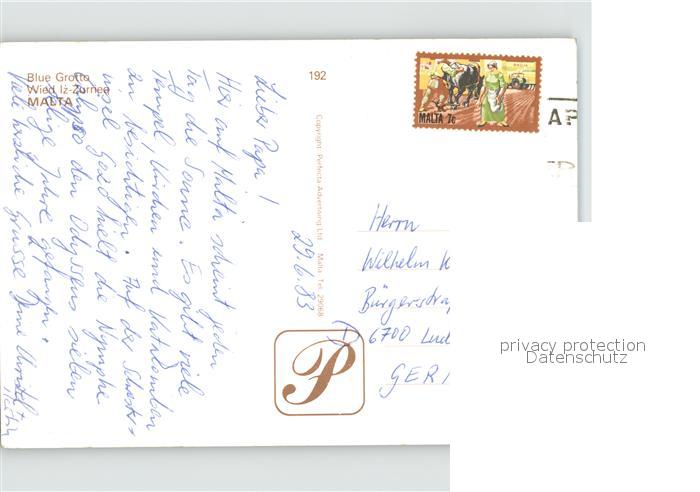 Blue Grotto
Wied Iż-Żurrieq
MALTA
192
Copyright Perfecta Advertising Ltd. Malta Tel. 29068
29.6.83
Lieber Papa!
Hier auf Malta scheint jeden
Tag die Sonne. Es gibt viele
Tempel, Kirchen und Katakomben
zu besichtigen. Auf der Schwester-
insel Gozo hielt die Nymphe
Calypso den Odysseus sieben
Jahre gefangen.
Viele herzliche Grüsse Deine
MALTA 7c
Herrn
Wilhelm
Bürgerstra
6700 Lud
GER
P
privacy protection
Datenschutz